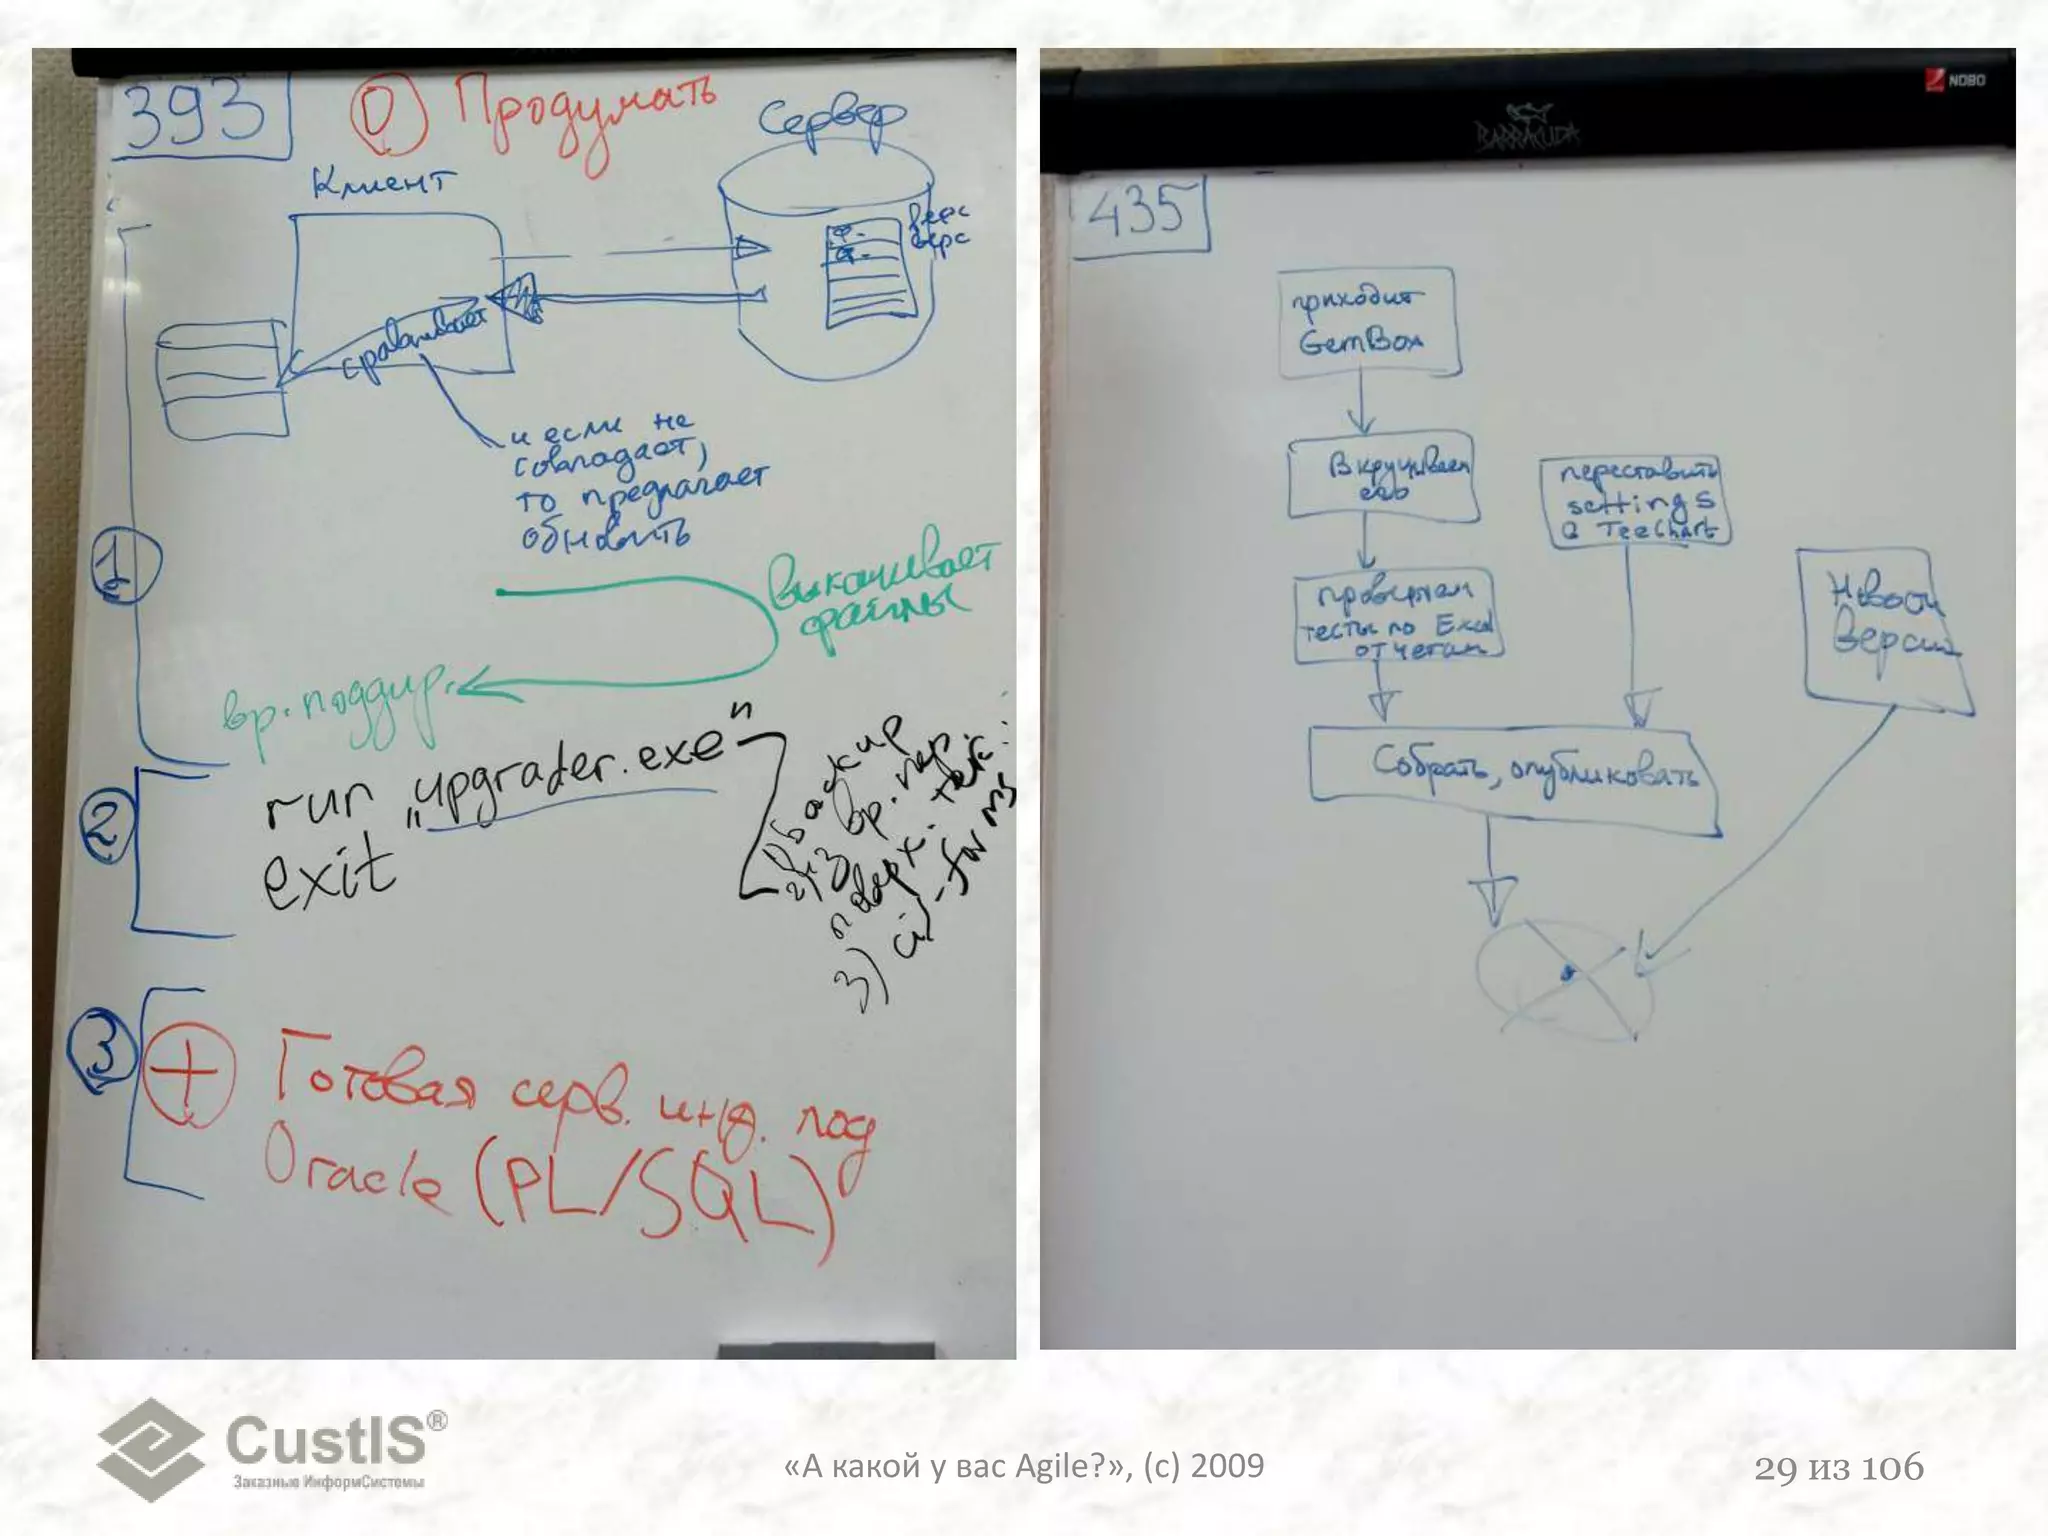 393
0 Продумать
Клиент
Сервер
ф. верс
ф. верс
сравнивает
и если не
совпадает,
то предлагает
обновить
1
выкачивает
файлы
вр. поддир.
2
run „upgrader.exe"
exit
1) backup
2) из вр. пер.
поверх. тек.
3)
3
+ Готовая серв. инф. под
Oracle (PL/SQL)
NOBO
BARRACUDA
435
приходит
GemBox
Вкручиваем
его
проверяем
тесты по Excel
отчетам
переставить
settings
в TeeChart
Новости
Версии
Собрать, опубликовать
CustIS®
Заказные ИнформСистемы
«А какой у вас Agile?», (c) 2009
29 из 106